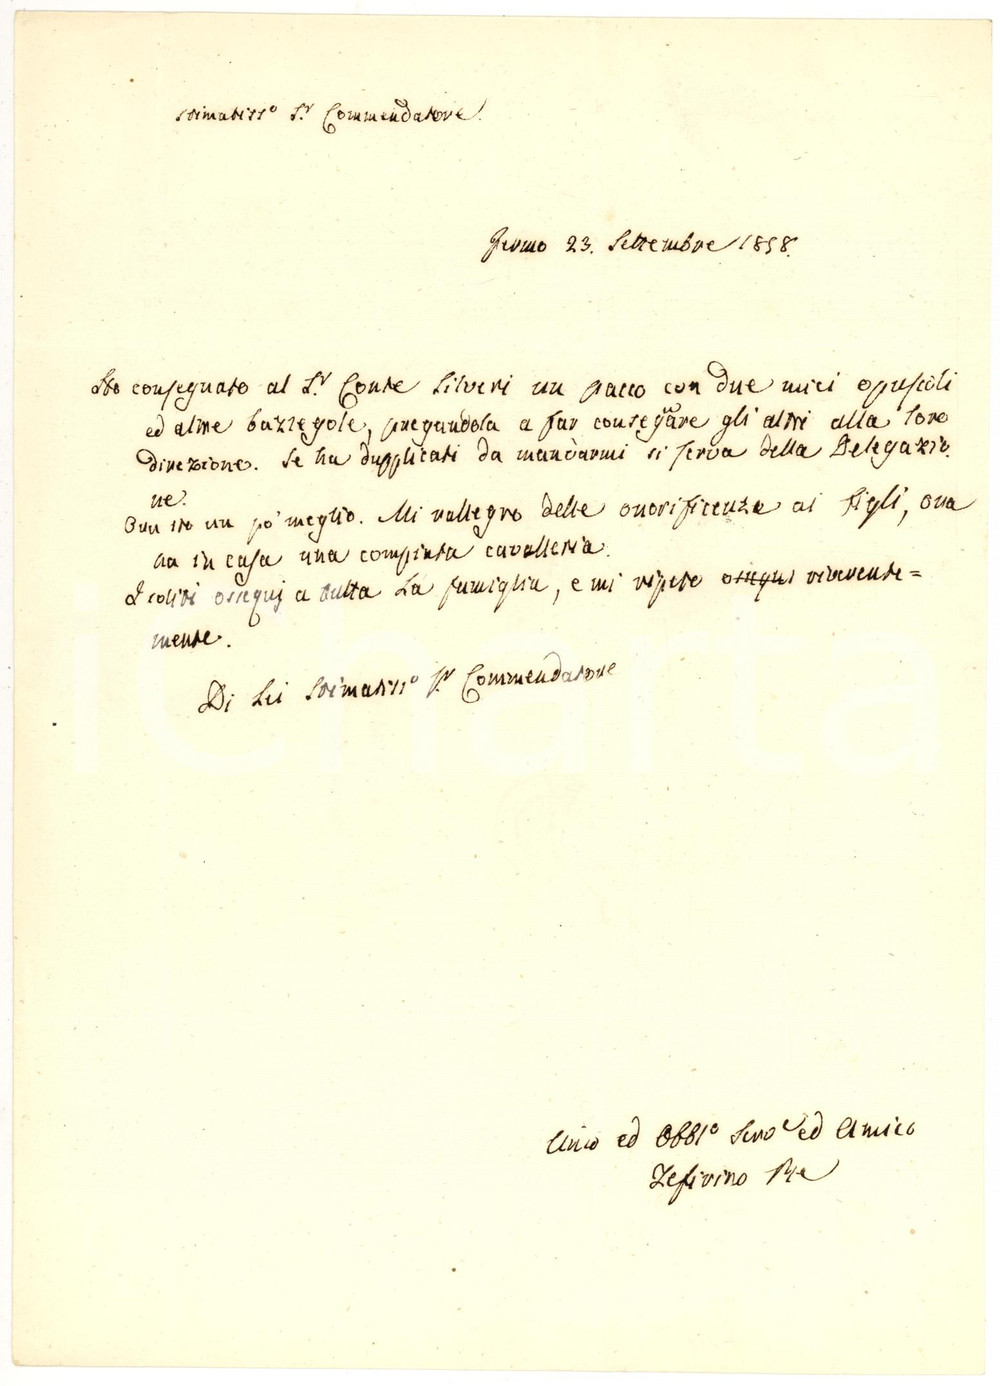 Stimatiss.o S.r Commendatore.
Fermo 23. Settembre 1858.
Ho consegnato al S.r Conte Silveri un pacco con due miei opuscoli
ed altre bazzegole, pregandola a far consegnare gli altri alla loro
direzione. Se ha dupplicati da mandarmi si serva della Delegazio
ne.
Ora sto un po' meglio. Mi rallegro delle onorificenze ai figli, ora
ha in casa una compiuta cavalleria.
I soliti ossequj a tutta La famiglia, e mi ripeto ossequi riverente=
mente.
Di Lei Stimatiss.o S.r Commendatore
ed Obbl.o Servo ed Amico
Zefirino Re
iCharta